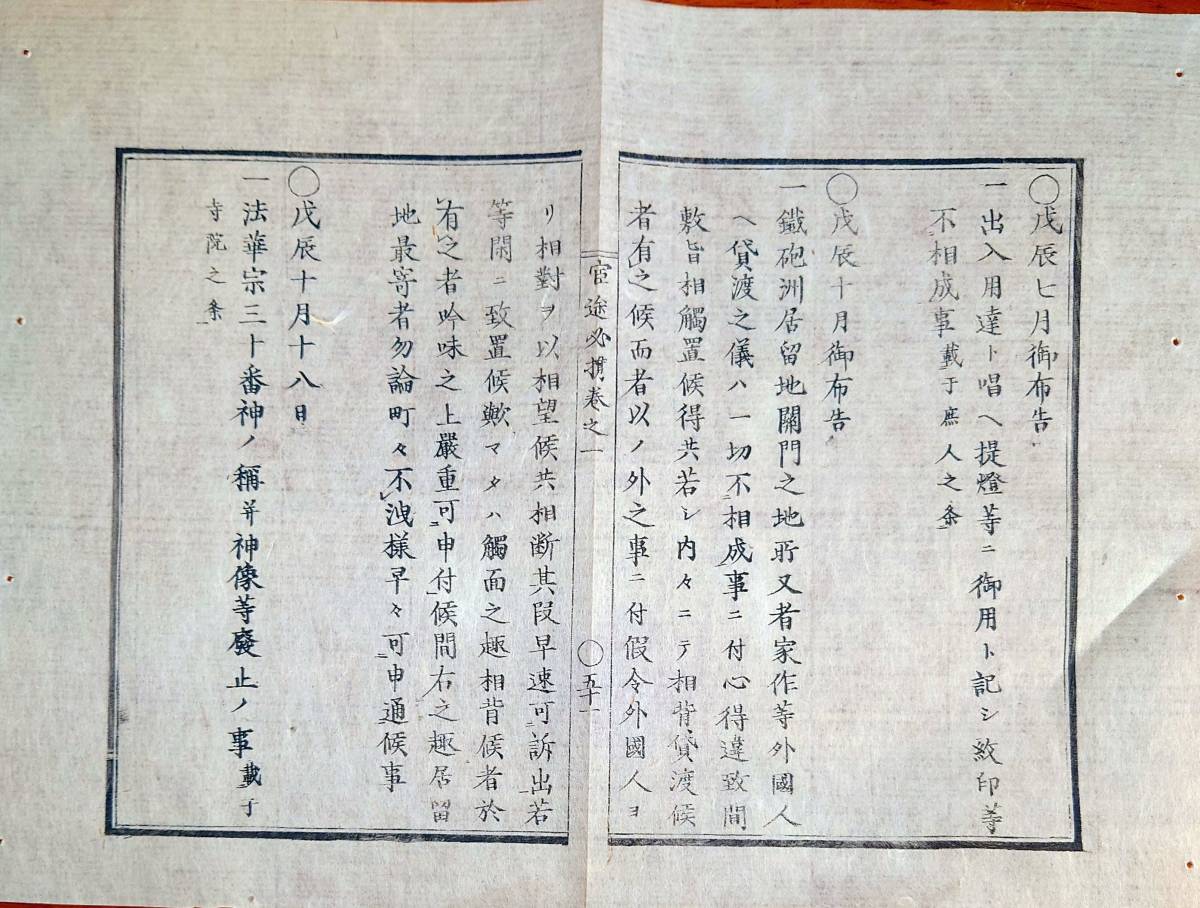 〇戊辰七月御布告
一出入用達ト唱ヘ提燈等ニ御用ト記シ紋印等
不相成事載于庶人之条
〇戊辰十月御布告
一鐵砲洲居留地關門之地所又者家作等外國人
ヘ貸渡之儀ハ一切不相成事ニ付心得違致間
敷旨相觸置候得共若シ内々ニテ相背貸渡候
者有之候而者以ノ外之事ニ付假令外國人ヨ
官途必携卷之一
〇五十一
リ相對ヲ以相望候共相断其段早速可訴出若
等閑ニ致置候歟マタハ觸面之趣相背候者於
有之者吟味之上嚴重可申付候間右之趣居留
地最寄者勿論町々不洩樣早々可申通候事
〇戊辰十月十八日
一法華宗三十番神ノ稱并神像等廢止ノ事載于
寺院之条